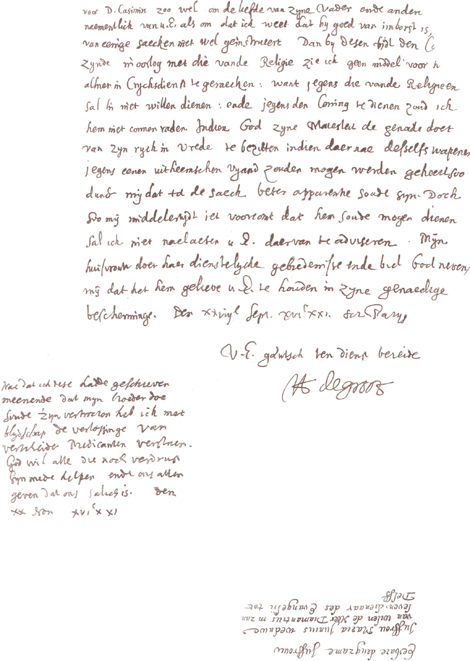 voor D. Casimir zoo wel om de liefde van zyne Vader ende andere
naementlick van u.E. als om dat ick weet dat hy goed van inborst is,
van eenige saecken niet wel geinstrueert Dan by desen tydt den
zynde in oorlog met die vande Religie zie ick geen middel voor
alhier in Crychsdienst te geraecken: want jegens die vande Religie
sal hy niet willen dienen: ende jegens den Coning te dienen zoud ick
hem niet connen raden Indien God zyne Maiesteit de genade doet
van zyn ryck in vrede te besitten indien daer nae deselfs wapenen
jegens eenen uitheemschen vyand zouden mogen werden
dunct mij dat tot de saeck beter apparentie soude syn. Doch
soo mij middelertijdt iet voorcomt dat hem soude mogen dienen
sal ick niet naelaeten u E. daer van te adviseren. Mijn
huisvrouw doet haer dienstelycke gebiedenisse ende bid God neven
mij dat het hem gelieve u E. te houden in zyne genaedige
bescherminge. Den xxvij Sept. xvi c xxi. Parys
V.E. gansch ten dienst bereide
H degroot
Nae dat ick dese hadde geschreven
meenende dat mijn broeder doe
soude zyn vertrocken heb ick met
blijdschap de verlossinge van
verscheide Predicanten verstaen.
God wil alle die noch verdruct
syn mede helpen ende ons allen
geven dat ons salich is. Den
xx xvi c xxi
Eerbare deugzame Juffrouw
Juffrou Maria Junius wedewe
van wylen de Heer Diamantius in zyn
leven dienaer des Evangelii tot
Delff